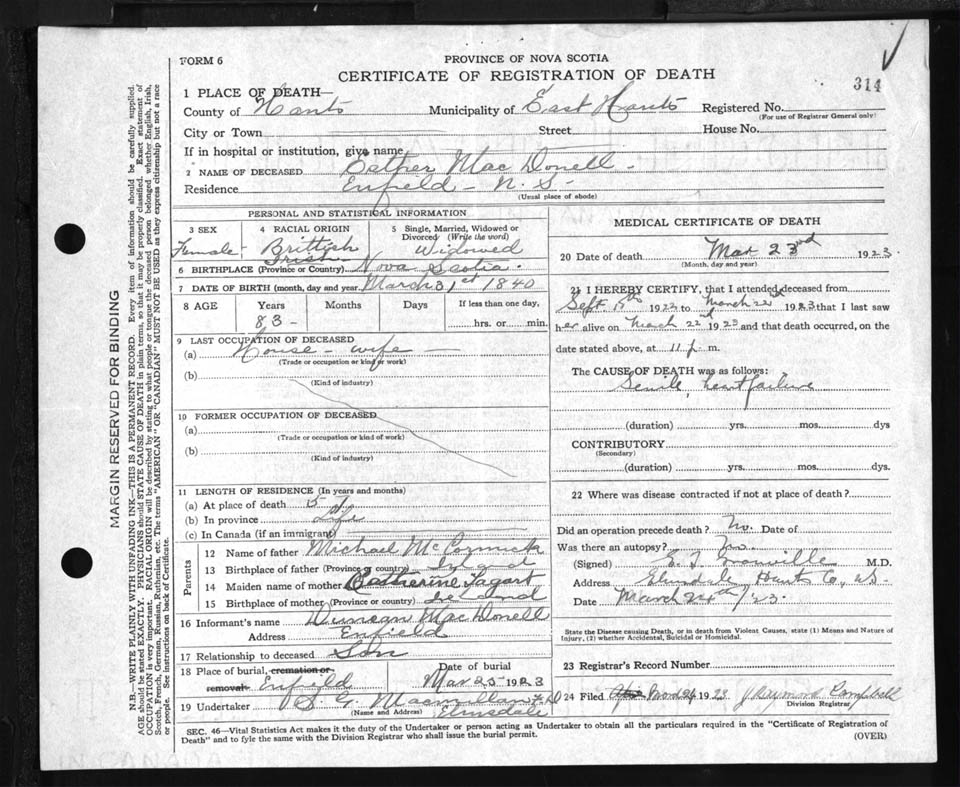 FORM 6
PROVINCE OF NOVA SCOTIA
CERTIFICATE OF REGISTRATION OF DEATH
314
1 PLACE OF DEATH—
County of Hants Municipality of East Hants Registered No.
(For use of Registrar General only)
City or Town Street House No.
If in hospital or institution, give name
2 NAME OF DECEASED Esther Mac Donell
Residence Enfield - N. S -
(Usual place of abode)
PERSONAL AND STATISTICAL INFORMATION
3 SEX 4 RACIAL ORIGIN 5 Single, Married, Widowed or Divorced (Write the word)
Female - Brittish Irish Widowed
6 BIRTHPLACE (Province or Country) Nova Scotia.
7 DATE OF BIRTH (month, day and year) March 31st 1840
8 AGE Years Months Days If less than one day,
83 - hrs. or min.
9 LAST OCCUPATION OF DECEASED
(a) House - wife -
(Trade or occupation or kind of work)
(b)
(Kind of industry)
10 FORMER OCCUPATION OF DECEASED
(a)
(Trade or occupation or kind of work)
(b)
(Kind of industry)
11 LENGTH OF RESIDENCE (In years and months)
(a) At place of death
(b) In province Life
(c) In Canada (if an immigrant)
Parents
12 Name of father Michael McCormick
13 Birthplace of father (Province or country) Ireland
14 Maiden name of mother Catherine Tagart
15 Birthplace of mother (Province or country) Ireland
16 Informant's name Duncan Mac Donell
Address Enfield
17 Relationship to deceased Son
18 Place of burial, cremation or removal Enfield Date of burial Mar 25 - 1923
19 Undertaker Macmillan
(Name and Address) Elmsdale
MEDICAL CERTIFICATE OF DEATH
20 Date of death Mar 23rd 1923
(Month, day and year)
21 I HEREBY CERTIFY, that I attended deceased from
Sept 1922 to March 22nd 1923 that I last saw
her alive on March 22nd 1923 and that death occurred, on the
date stated above, at 11 p. m.
The CAUSE OF DEATH was as follows:
Senile heart failure
(duration) yrs. mos. dys
CONTRIBUTORY
(Secondary)
(duration) yrs. mos. dys.
22 Where was disease contracted if not at place of death?
Did an operation precede death? No. Date of
Was there an autopsy? No.
(Signed) M.D.
Address Elmsdale Hants Co, N.S.
Date March 24th/23.
State the Disease causing Death, or in death from Violent Causes, state (1) Means and Nature of Injury, (2) whether Accidental, Suicidal or Homicidal.
23 Registrar's Record Number
24 Filed 1923 Campbell
Division Registrar
SEC. 46—Vital Statistics Act makes it the duty of the Undertaker or person acting as Undertaker to obtain all the particulars required in the "Certificate of Registration of
Death" and to fyle the same with the Division Registrar who shall issue the burial permit.
(OVER)
MARGIN RESERVED FOR BINDING
N.B.—WRITE PLAINLY WITH UNFADING INK—THIS IS A PERMANENT RECORD. Every item of information should be carefully supplied.
AGE should be stated EXACTLY. PHYSICIANS should STATE CAUSE OF DEATH in plain terms, so that it may be properly classified. Exact statement of
OCCUPATION is very important. RACIAL ORIGIN will be described by stating to what people or tongue the deceased person belonged whether English, Irish,
Scotch, French, German, Russian, Ruthenian, etc. The terms "AMERICAN" OR "CANADIAN" MUST NOT BE USED as they express citizenship but not a race
or people. See instructions on back of Certificate.